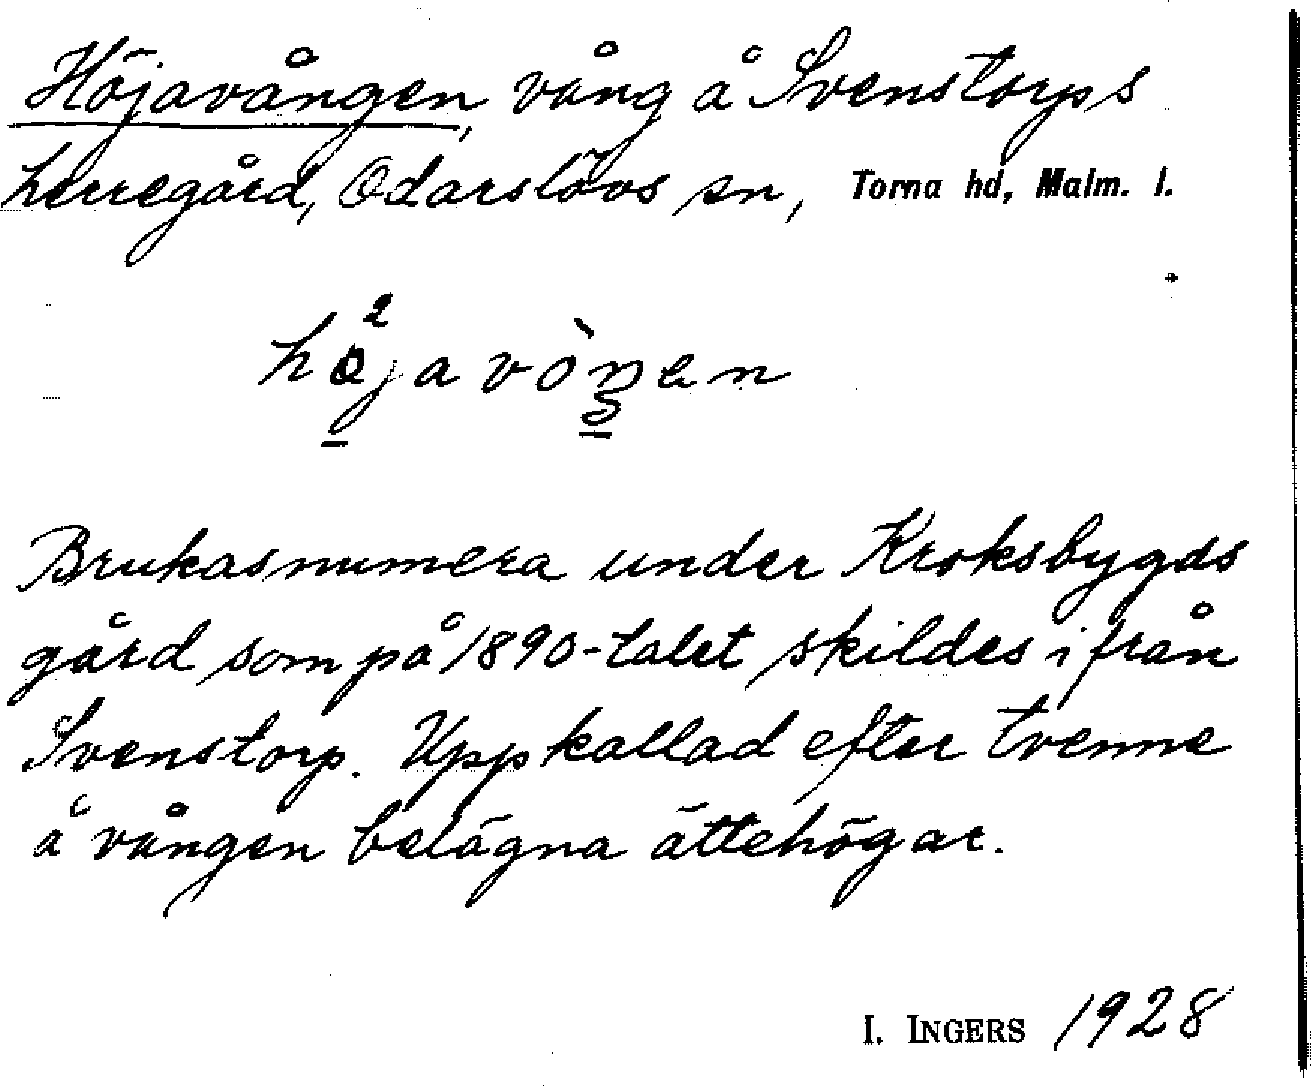 Höjavången, vång å Svenstorps
herregård, Odarslövs sn, Torna hd, Malm. l.
Brukas numera under Kroksbygds
gård som på 1890-talet skildes ifrån
Svenstorp. Uppkallad efter tvenne
å vången belägna ättehögar.
I. INGERS 1928